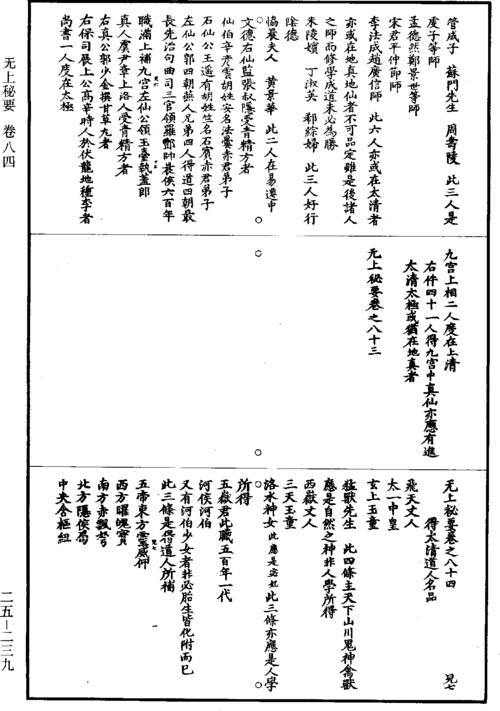 无上秘要 卷八四
管成子 蘇門先生 周壽陵 此三人是
度子等師
孟德然鄭景世等師
宋君平仲節師
李法成趙廣信師 此六人亦或在太清者
亦或在地真地仙者不可品定雖是後諸人
之師而修學成道未必為勝
朱陵嬪 丁淑英 郗綜婦 此三人好行
陰德
協晨夫人 黃景華 此二人在易遷中
文德右仙監張叔隱受青精方者
仙伯辛彥雲胡姓安名法曇赤君弟子
石仙公王遁有胡姓竺名石賓赤君弟子
左仙公郭四朝燕人兄弟四人得道四朝最
長先治句曲司三官領羅酆帥晨侯六百年
職滿上補九宮左仙公領玉臺執蓋郎
真人虞尹章上洛人受青精方者
右真公郭少金撰甘草丸者
右保司展上公高辛時人於伏龍地種李者
尚書一人度在太極
九宮上相二人度在上清
右件四十一人得九宮中真仙亦應有進
太清太極或猶在地真者
无上秘要卷之八十三
无上秘要卷之八十四 兄七
得太清道人名品
飛天丈人
太一中皇
玄上玉童
猛獸先生 此四條主天下山川鬼神禽獸
應是自然之神非人學所得
西嶽丈人
三天玉童
洛水神女此應是宓妃 此三條亦應是人學
所得
五嶽君此職五百年一代
河侯河伯
又有河伯少女者非必胎生皆化附而已
此三條是得道人所補
五帝東方靈威仰
西方曜魄寶
南方赤飄弩
北方隱侯局
中央含樞紐
二五-二三九